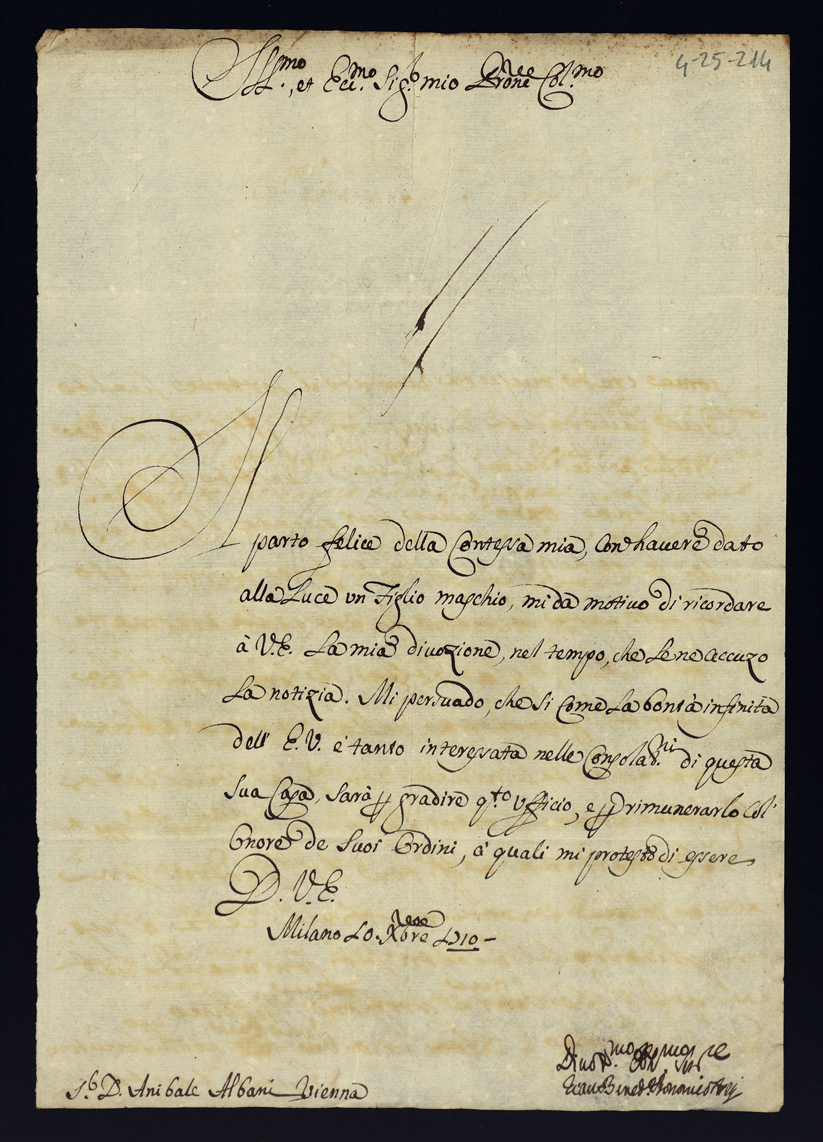 4-25-214
Ill.mo, et Ecc.mo Sig.r mio P̄rone Col.mo
Il parto felice della Contessa mia, con hauere dato
alla Luce vn Figlio maschio, mi dà motiuo di ricordare
à V.E. La mia diuozione, nel tempo, che Le ne accuzo
La notizia. Mi persuado, che si come La bontà infinita
dell' E.V. è tanto interessata nelle Consolaz.ni di questa
sua Casa, sarà p gradire q.to Vfficio, e p rimunerarlo col'
Onore de Suoi Ordini, à quali mi protesto di essere
D. V.E.
Milano 10 Xbre 1710 -
S.r D. Anibale Albani Vienna